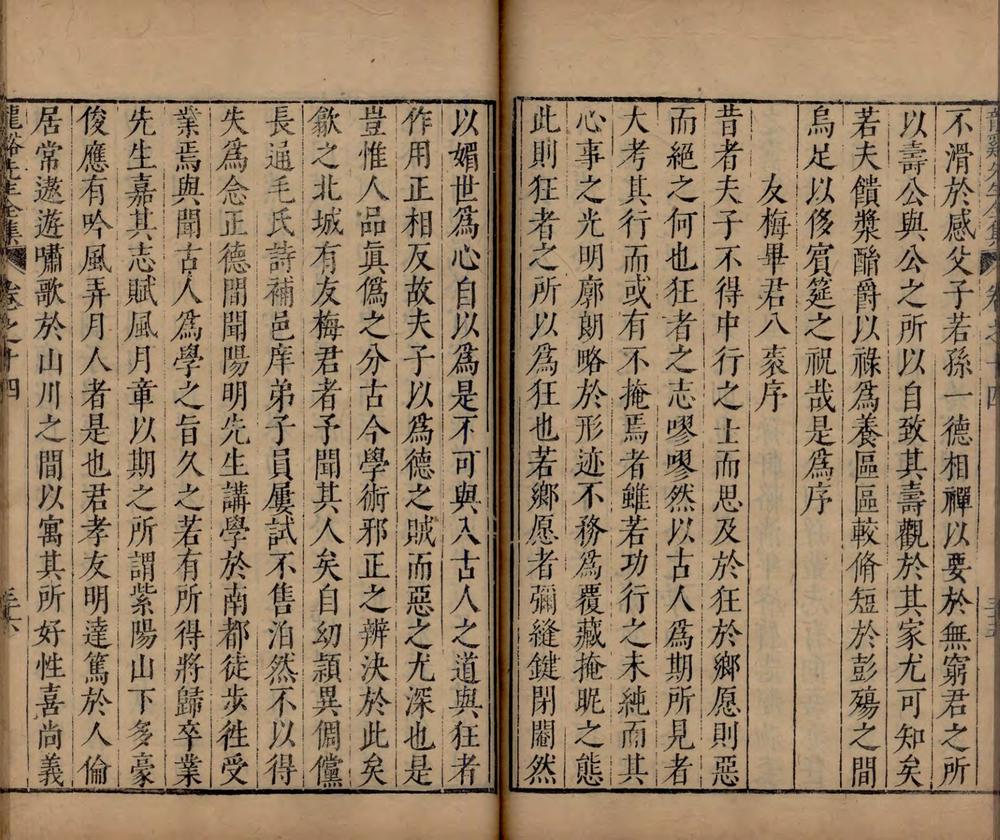 不滑於感父子若孫一德相禪以要於無窮君之所
以壽公與公之所以自致其壽觀於其家尤可知矣
若夫饋漿酳爵以祿爲養區區較脩短於彭殤之間
烏足以侈賓筵之祝哉是爲序
友梅畢君八袠序
昔者夫子不得中行之士而思及於狂於鄉愿則惡
而絕之何也狂者之志嘐嘐然以古人爲期所見者
大考其行而或有不掩焉者雖若功行之未純而其
心事之光明廓朗略於形迹不務爲覆藏掩昵之態
此則狂者之所以爲狂也若鄉愿者彌縫鍵閉閹然
以媚世爲心自以爲是不可與入古人之道與狂者
作用正相反故夫子以爲德之賊而惡之尤深也是
豈惟人品眞僞之分古今學術邪正之辨決於此矣
歙之北城有友梅君者予聞其人矣自幼頴異倜儻
長通毛氏詩補邑庠弟子員屢試不售泊然不以得
失爲念正德間聞陽明先生講學於南都徒步徃受
業焉與聞古人爲學之旨久之若有所得將歸卒業
先生嘉其志賦風月章以期之所謂紫陽山下多豪
俊應有吟風弄月人者是也君孝友明達篤於人倫
居常遨遊嘯歌於山川之間以寓其所好性喜尚義
龍谿先生全集 卷之十四